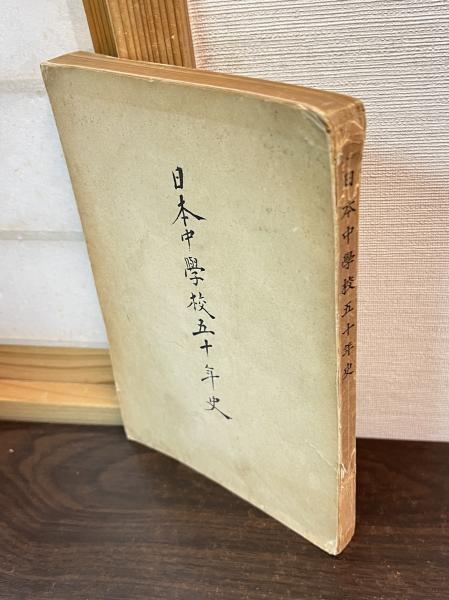 日本中學校五十年史
日本中學校五十年史